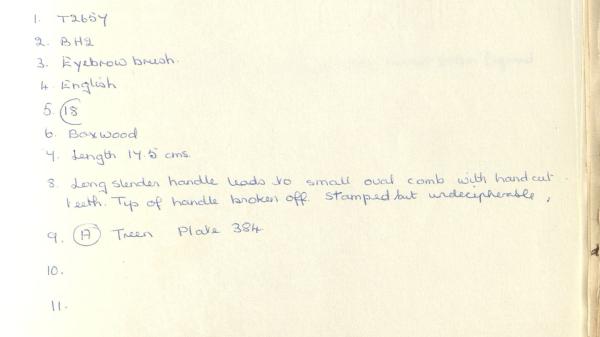 1. T2657
2. BH2
3. Eyebrow brush.
4. English
5. 18
6. Boxwood
7. Length 17.5 cms.
8. Long slender handle leads to small oval comb with handcut
teeth. Tip of handle broken off. Stamped but undecipherable,
9. A Treen Plate 384.
10.
11.